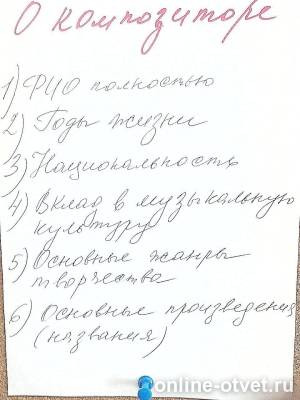 О композиторе
1) ФИО полностью
2) Годы жизни
3) Национальность
4) Вклад в музыкальную
культуру
5) Основные жанры
творчества
6) Основные произведения
(названия)
online-otvet.ru